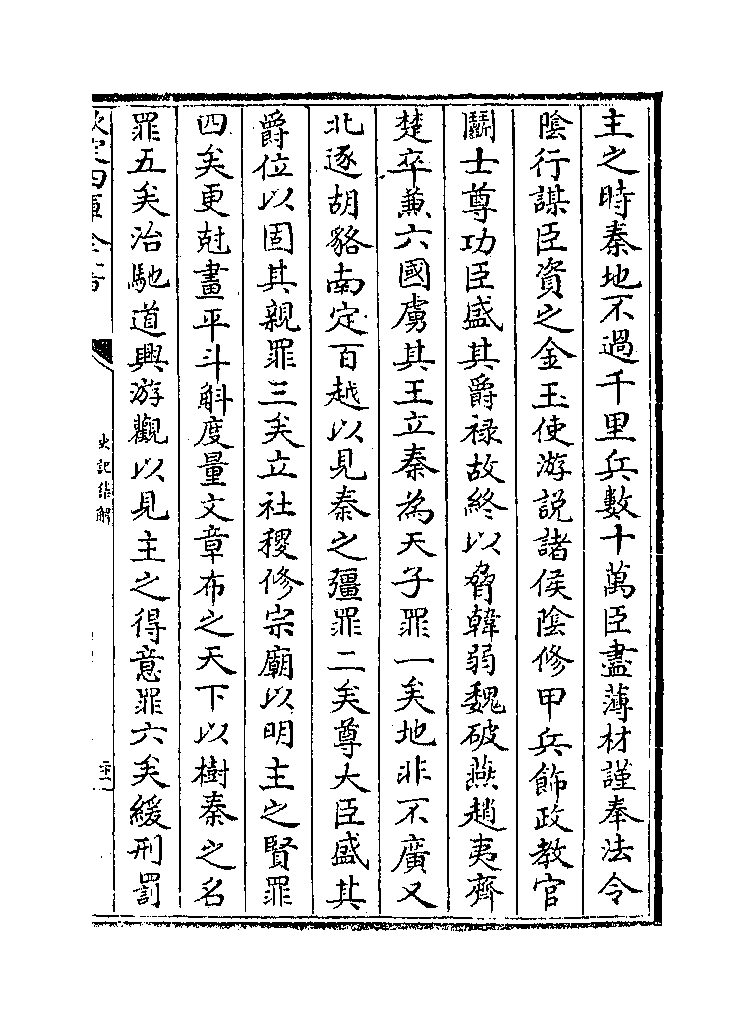 主之時秦地不過千里兵數十萬臣盡薄材謹奉法令
陰行謀臣資之金玉使游說諸侯陰修甲兵飾政教官
鬭士尊功臣盛其爵禄故終以脅韓弱魏破燕趙夷齊
楚卒兼六國虜其王立秦為天子罪一矣地非不廣又
北逐胡貉南定百越以見秦之彊罪二矣尊大臣盛其
爵位以固其親罪三矣立社稷修宗廟以明主之賢罪
四矣更尅畫平斗斛度量文章布之天下以樹秦之名
罪五矣治馳道興游觀以見主之得意罪六矣緩刑罰
欽定四庫全書
史記